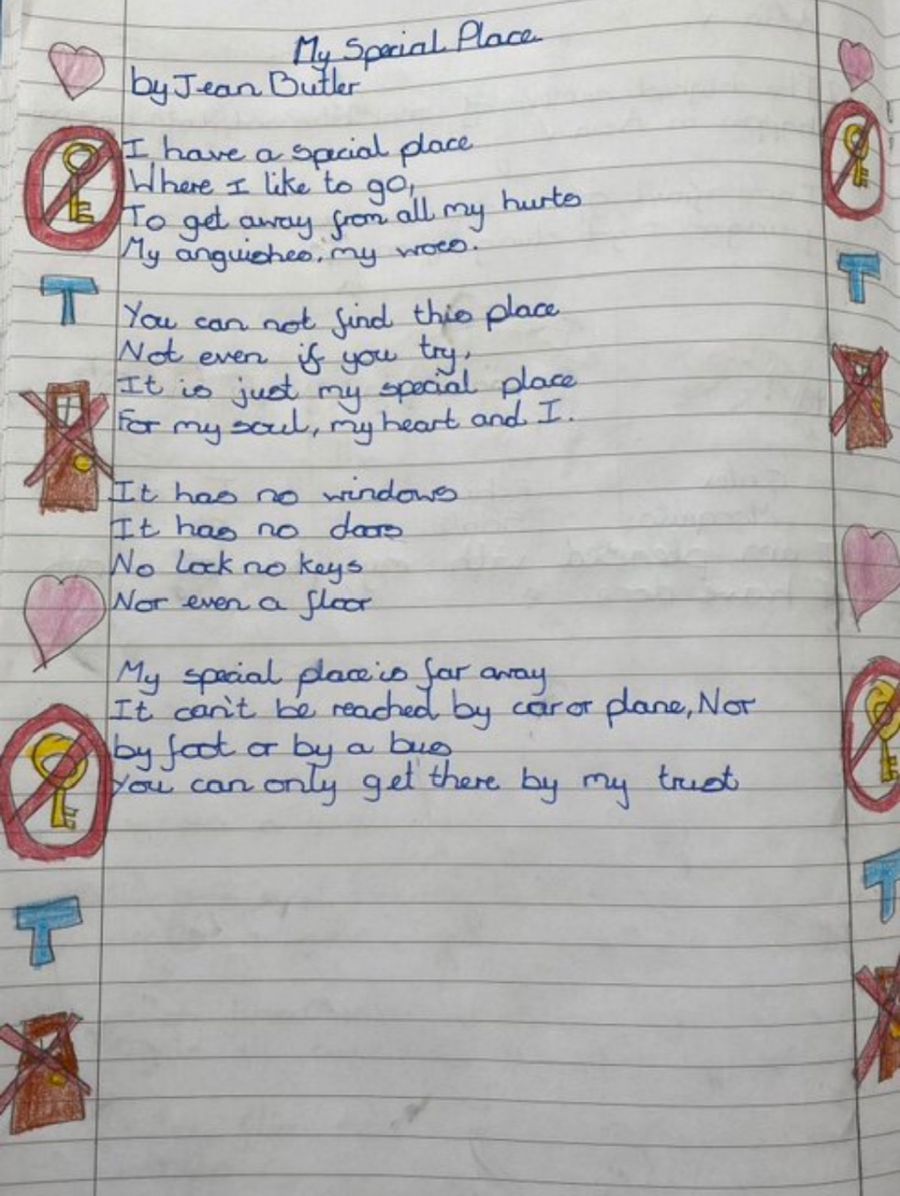 My Special Place
by Jean Butler
I have a special place
Where I like to go,
To get away from all my hurts
My anguishes, my woes.
You can not find this place
Not even if you try,
It is just my special place
For my soul, my heart and I.
It has no windows
It has no doors
No lock no keys
Nor even a floor
My special place is far away
It can't be reached by car or plane, Nor
by foot or by a bus
You can only get there by my trust
T
T
T
T